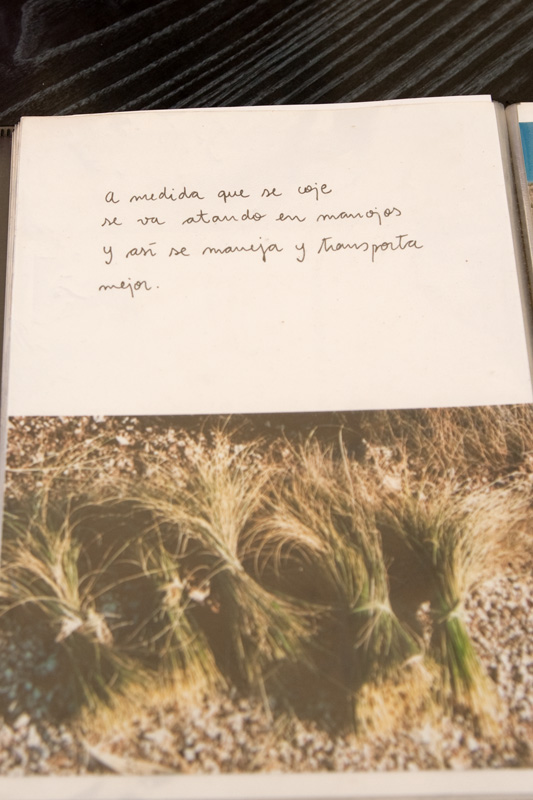 a medida que se coje
se va atando en manojos
y así se maneja y transporta
mejor.